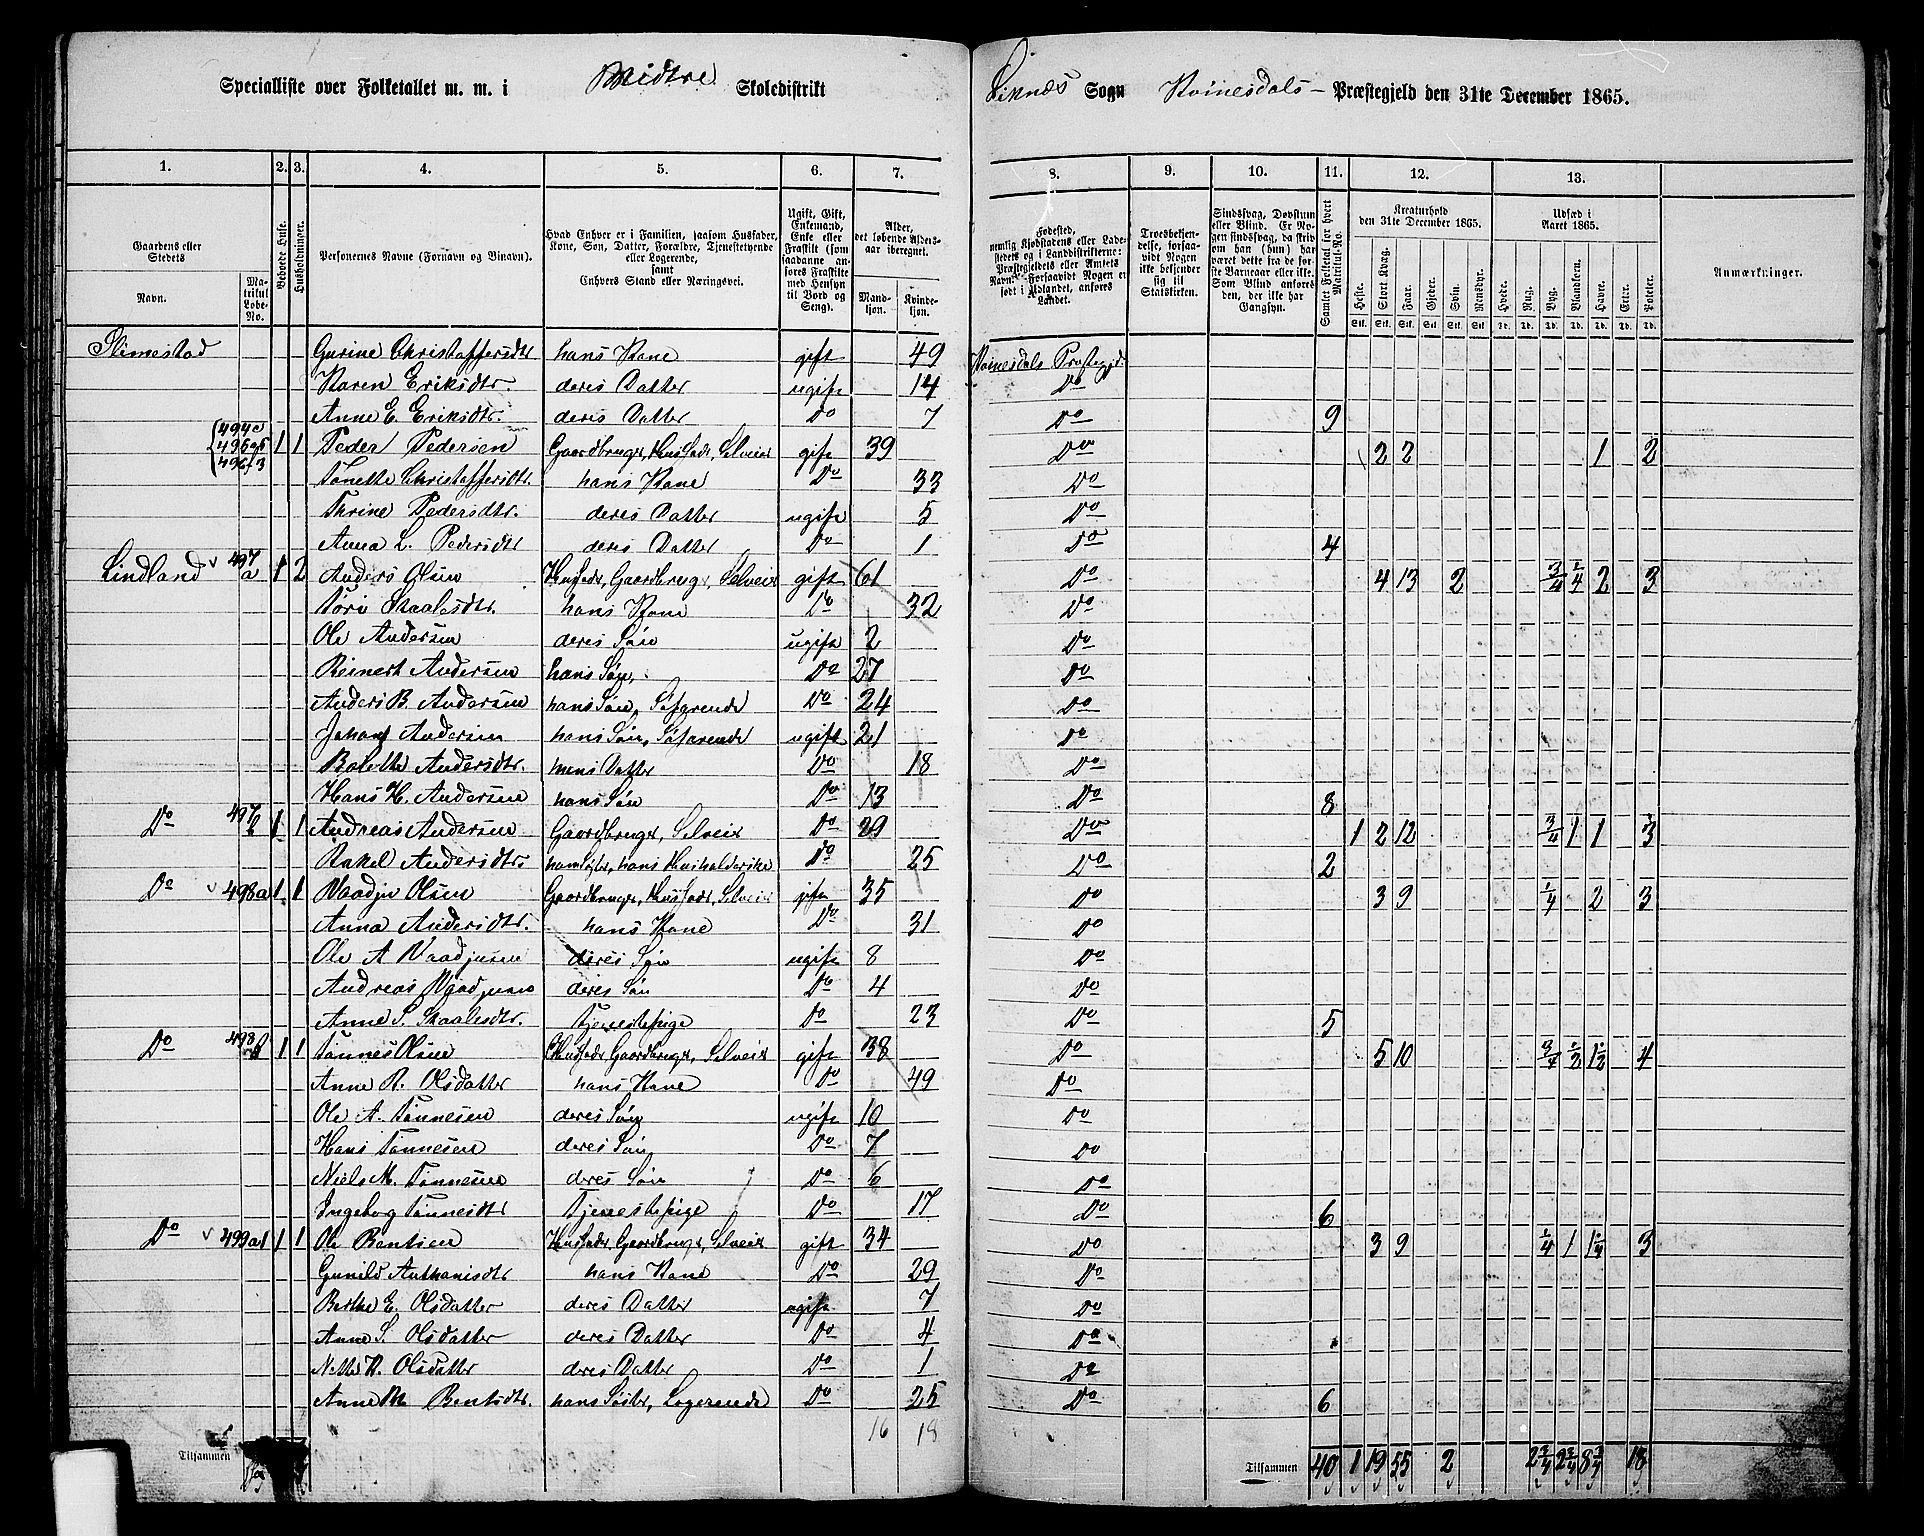 Specialliste over Folketallet m. m. i Midtre Skoledistrikt Liknæs Sogn Kvinesdals Præstegjeld den 31te December 1865.
1. 2. 3. 4. 5. 6. 7. 8. 9. 10. 11. 12. 13.
Gaardens eller Stedets
Navn.
Matrikul Løbe-No.
Beboede Huse.
Husholdninger.
Personernes Navne (Fornavn og Tilnavn).
Hvad Enhver er i Familien, saasom Husfader, Kone, Søn, Datter, Forældre, Tjenestetyende eller Logerende, samt Enhvers Stand eller Næringsvei.
Ugift, Gift, Enkemand, Enke eller Fraskilt (som saadanne anføres Fraskilte med Hensyn til Bord og Seng).
Alder, det løbende Aldersaar iberegnet.
Mandkjøn.
Kvindekjøn.
Fødested,
nemlig Kjøbstadens eller Ladestedets og i Landdistrikterne: Præstegjeldets eller Amtets Navn. Forsaavidt Nogen er født i Udlandet, anføres Landet.
Troesbekjendelse, forsaavidt Nogen ikke bekjender sig til Statskirken.
Sindssvag, Døvstum eller Blind. Er Nogen sindssvag, da skrives om han (hun) har været dette fra de første Barneaar eller ikke. Som Blind anføres den, der ikke har Gangsyn.
Samlet Folketal for hvert Matrikul-No.
Kreaturhold den 31te December 1865.
Heste. Stort Kvæg. Faar. Gjeder. Svin. Rensdyr.
Udsæd i Aaret 1865.
Hvede. Rug. Byg. Blandkorn. Havre. Erter. Poteter.
Anmærkninger.
Slimestad Gurine Christoffersdtr hans Kone gift 49 Kvinesdals Præstegjd.
Karen Eriksdtr. deres Datter ugift 14 Do
Anne E. Eriksdtr. deres Datter Do 7 Do 9
1 1 Peder Pedersen Gaardbruger, Husfader, Selveier gift 39 Do 2 2 1 2
Tonette Christoffersdtr. hans Kone Do 33 Do
Thrine Pedersdtr. deres Datter ugift 5 Do
Anna L. Pedersdtr deres Datter Do 1 Do 4
Lindland 497a 1 2 Anders Olsen Husfader, Gaardbruger, Selveier gift 61 Do 4 13 2 3/4 2/4 2 3
Tori Skaalesdtr. hans Kone Do 32 Do
Ole Andersen deres Søn ugift 2 Do
Reinert Andersen hans Søn, Do 27 Do
Anders B. Andersen hans Søn, Søfarende Do 24 Do
Johan Andersen hans Søn, Søfarende ugift 21 Do
Bolette Andersdtr. hans Datter Do 18 Do
Hans H. Andersen hans Søn Do 13 Do 8
Do 497b 1 1 Andreas Andersen Gaardbruger, Selveier Do 29 Do 1 2 12 3/4 1 1 3
Rakel Andersdtr hans Søster, hans Husholderske Do 25 Do 2
Do 498a 1 1 Vaadju Olsen Gaardbruger, Husfader, Selveier gift 35 Do 3 9 1/4 2 3
Anna Andersdtr. hans Kone Do 31 Do
Ole A Vaadjusen deres Søn ugift 8 Do
Andreas Vaadjusen deres Søn Do 4 Do
Anne S. Skaalesdtr. Tjenestepige Do 23 Do 5
Do 498 1 1 Tønnes Olsen Husfader, Gaardbruger, Selveier gift 38 Do 5 10 3/4 1/2 1 1/2 4
Anne R. Olsdatter hans Kone Do 49 Do
Ole A. Tønnesen deres Søn ugift 10 Do
Hans Tønnesen deres Søn Do 7 Do
Niels M. Tønnesen deres Søn Do 6 Do
Ingebog Tønnesdtr Tjenestepige Do 17 Do 6
Do 499a1 1 1 Ole Bentsen Husfader, Gaardbruger, Selveier gift 34 Do 3 9 1/4 1 1 1/4 3
Gunild Anthonisdtr hans Kone Do 29 Do
Berthe E. Olsdatter deres Datter ugift 7 Do
Anne S. Olsdatter deres Datter Do 4 Do
Nette K. Olsdatter deres Datter Do 1 Do
Anne M Bentsdtr. hans Søster, Logerende Do 25 Do 6
16 18
Tilsammen Tilsammen 40 1 19 55 2 2 3/4 2 3/4 8 3/4 18